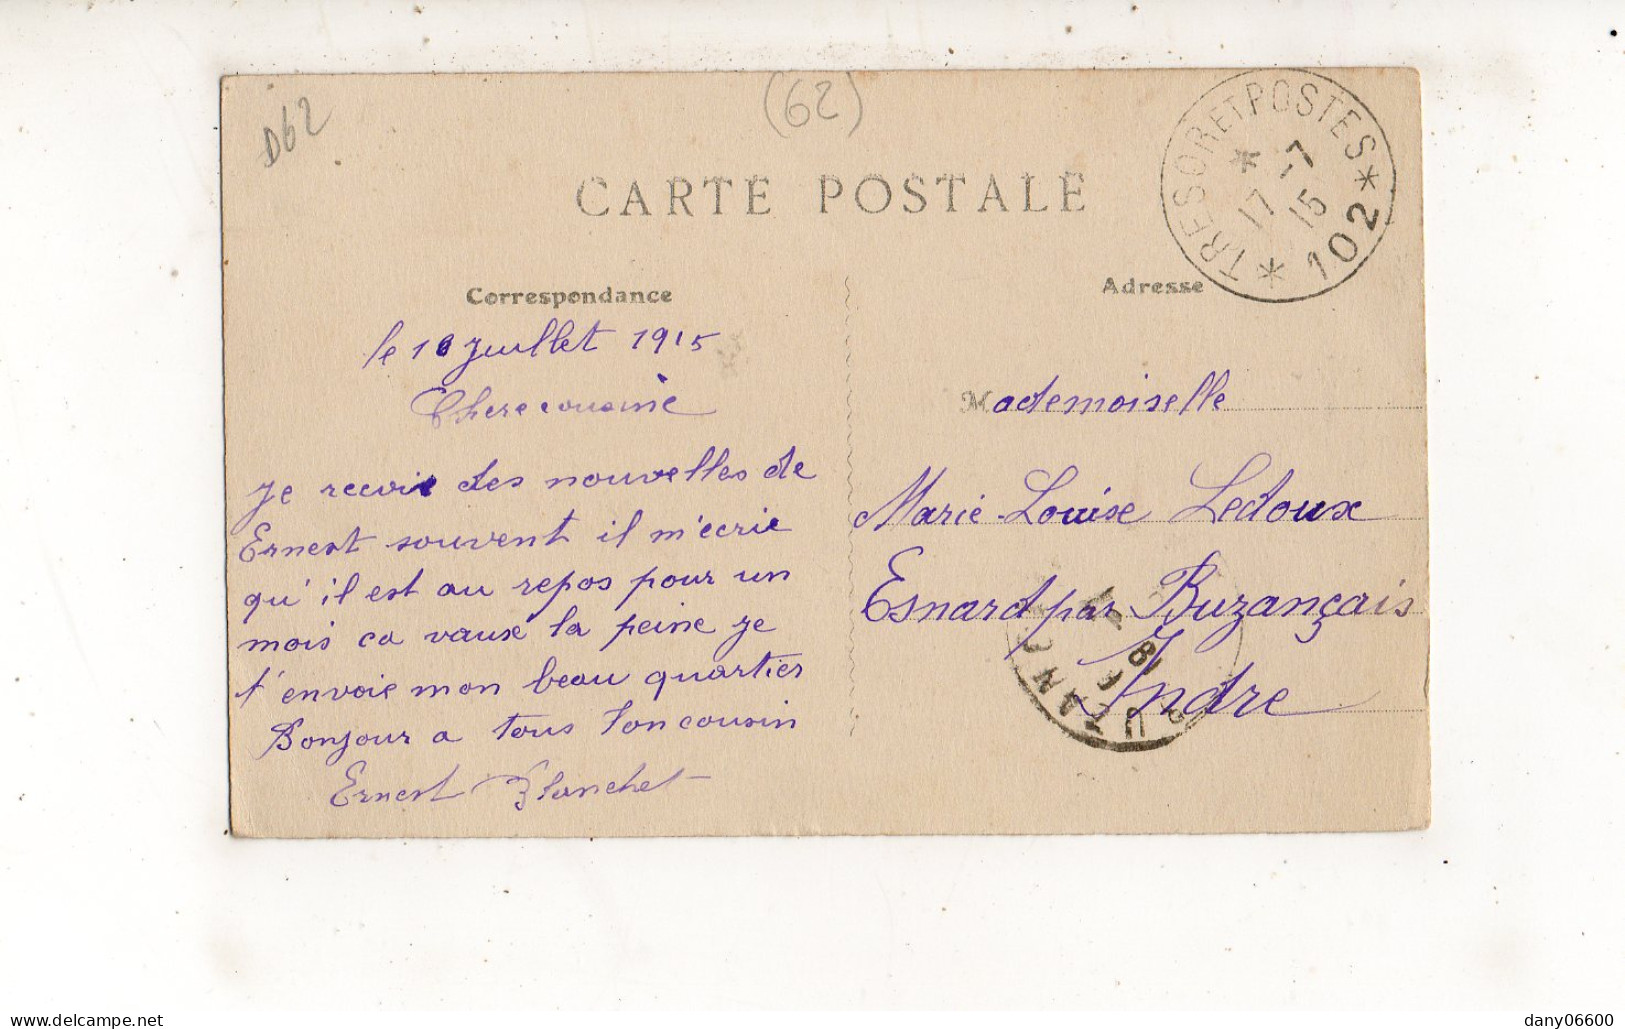 D62
(62)
CARTE POSTALE
TRESOR ET POSTES
* 17 -7 15 *
* 102 *
Correspondance
le 16 Juillet 1915
Chere cousine
Je reçois des nouvelles de
Ernest souvent il m'écrie
qu'il est au repos pour un
mois ca vaux la peine je
t'envoie mon beau quartier
Bonjour a tous ton cousin
Ernest Blanchet
Adresse
Mademoiselle
Marie Louise Ledoux
Esnard par Buzançais
Indre
BUZANÇ
18
www.delcampe.net
dany06600